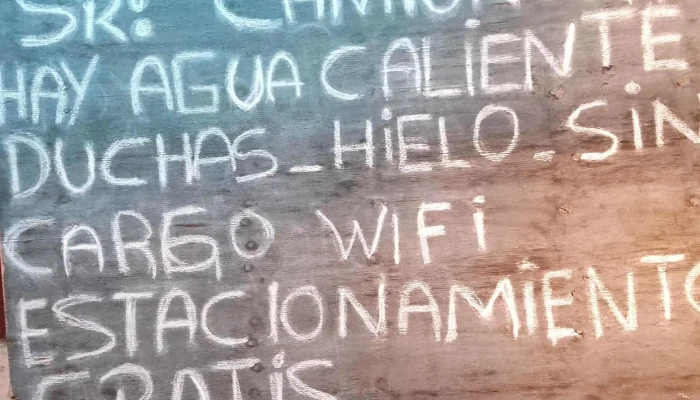 SR:
HAY AGUA CALIENTE
DUCHAS - HIELO - SIN
CARGO WIFI
ESTACIONAMIENTO
GRATIS